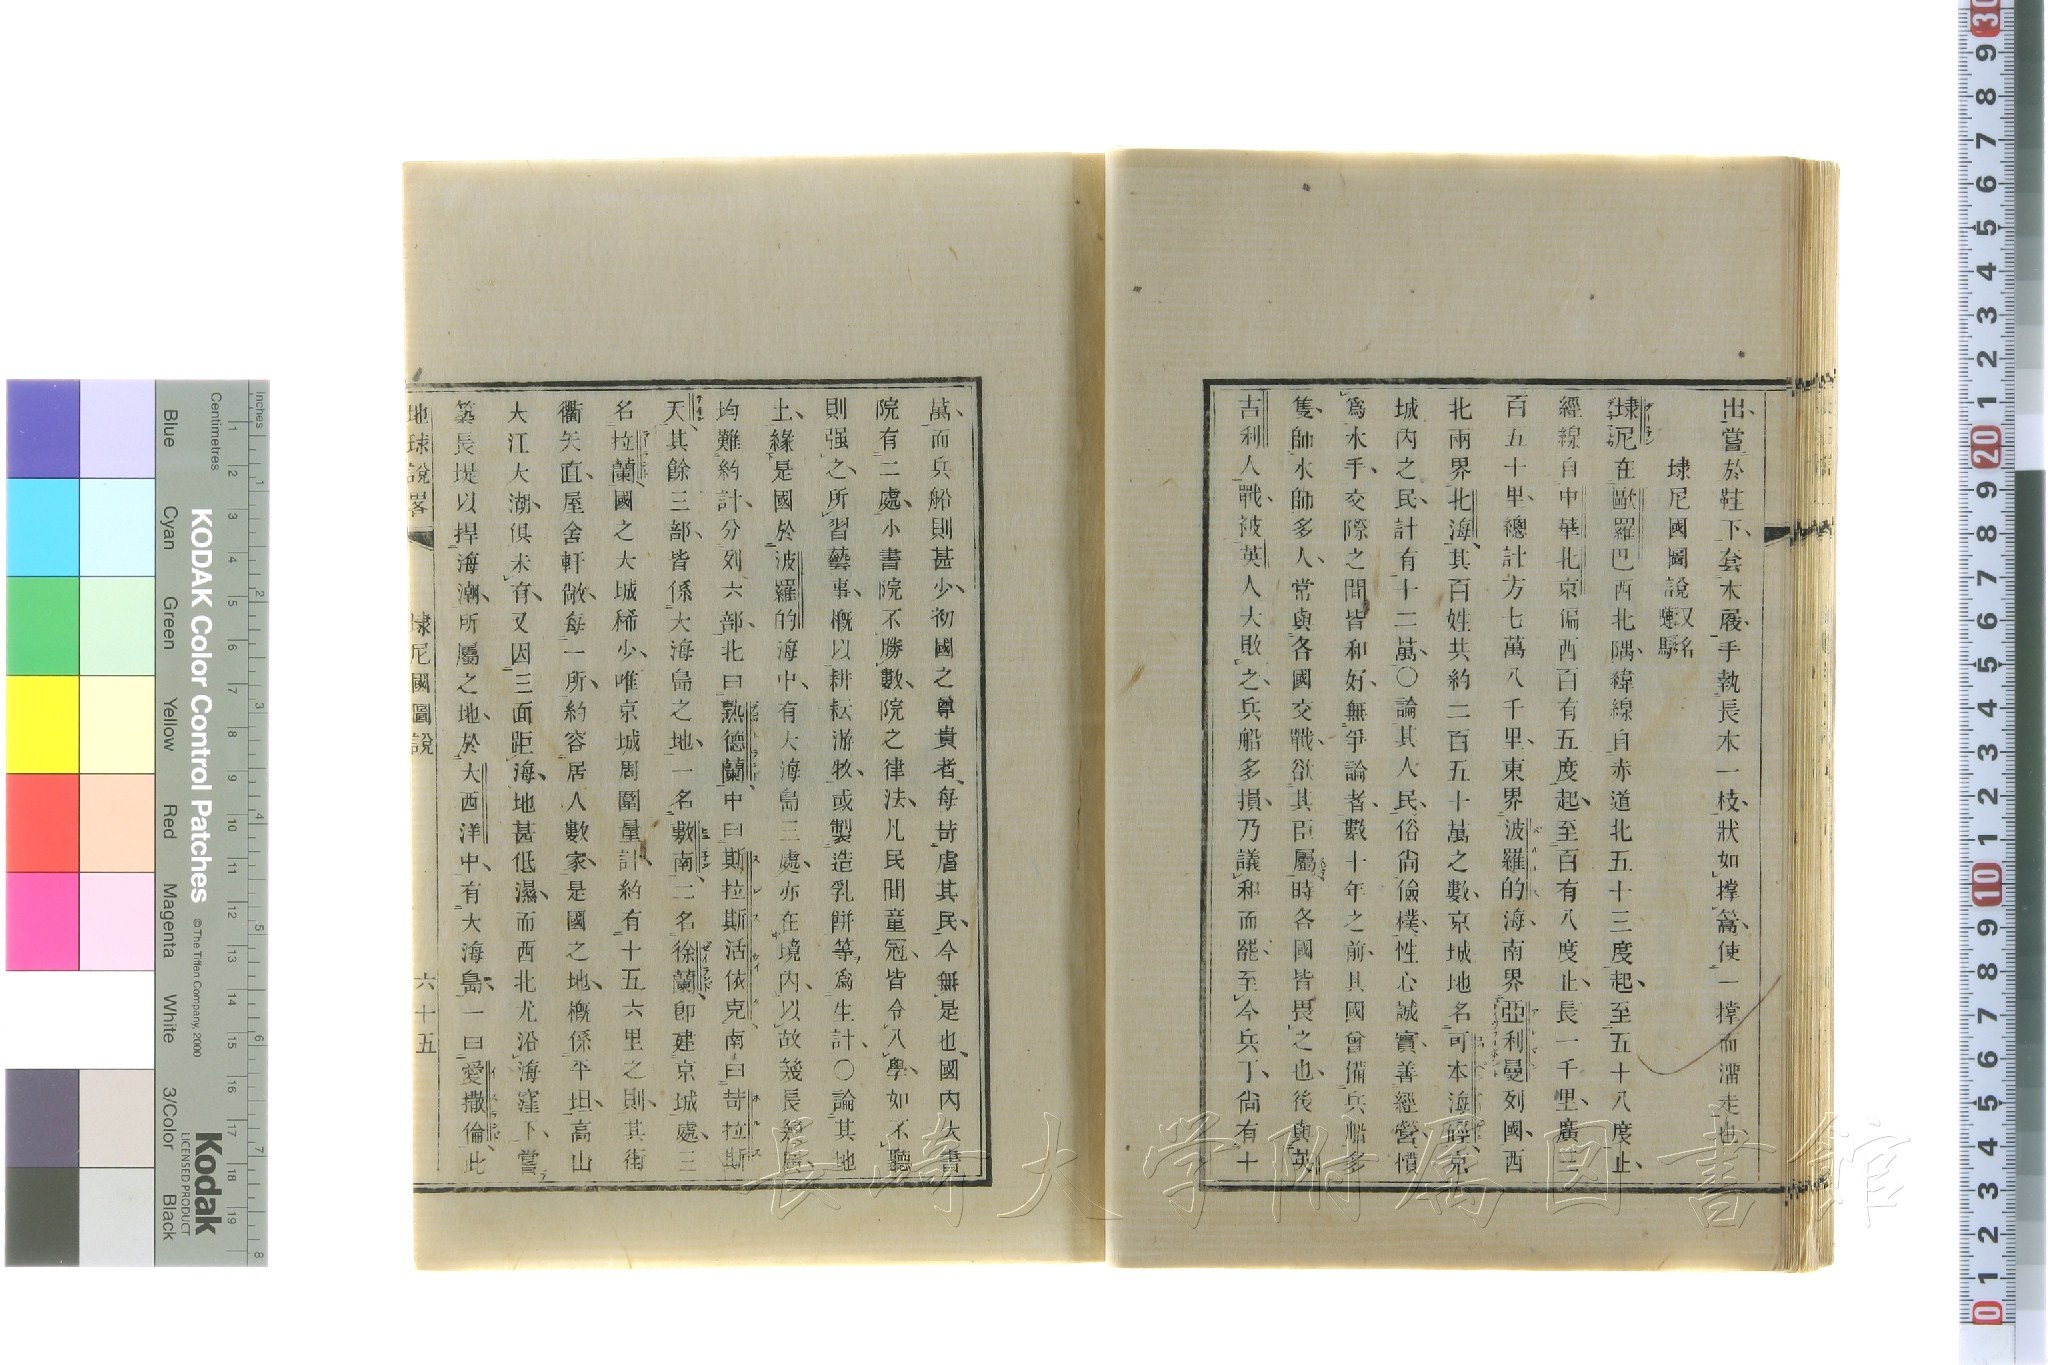 出嘗於鞋下套木屐手執長木一枝狀如撑篙使一撑而溜走也
埭尼國圖說又名嗹馬
埭尼在歐羅巴西北隅緯線自赤道北五十三度起至五十八度止
經線自中華北京偏西百有五度起至百有八度止長一千里廣三
百五十里總計方七萬八千里東界波羅的海南界亞利曼列國西
北兩界北海其百姓共約二百五十萬之數京城地名可本海
城內之民計有十二萬〇論其人民俗尙儉樸性心誠實善經營慣
爲水手交際之間皆和好無爭論者數十年之前其國曾備兵船多
隻師水師多人常與各國交戰欲其臣屬時各國皆畏之也後與英
吉利人戰被英人大敗之兵船多損乃議和而罷至今兵丁尙有十
萬而兵船則甚少初國之尊貴者每苛虐其民今無是也國內大書
院有二處小書院不勝數院之律法凡民間童冠皆令入學如不聽
則强之所習藝事概以耕耘游牧或製造乳餅等爲生計〇論其地
土緣是國於波羅的海中有大海島三處亦在境內以故幾長幾廣
均難約計分列六部北曰熟德蘭中曰斯拉斯活依克南曰苛拉斯
天其餘三部皆係大海島之地一名敷南二名徐蘭卽建京城處三
名拉蘭國之大城稀少唯京城周圍量計約有十五六里之則其街
衢矢直屋舍軒敞每一所約容居人數家是國之地概係平坦高山
大江大湖俱未有又因三面距海地甚低濕而西北尤沿海窪下嘗
築長堤以捍海潮所屬之地於大西洋中有大海島一曰愛撒倫此
地球說畧
埭尼國圖說
六十五
長崎大学附属図書館
KODAK Color Control Patches
© The Tiffen Company, 2000
Kodak
LICENSED PRODUCT
Inches
Centimetres
Blue
Cyan
Green
Yellow
Red
Magenta
White
3/Color
Black